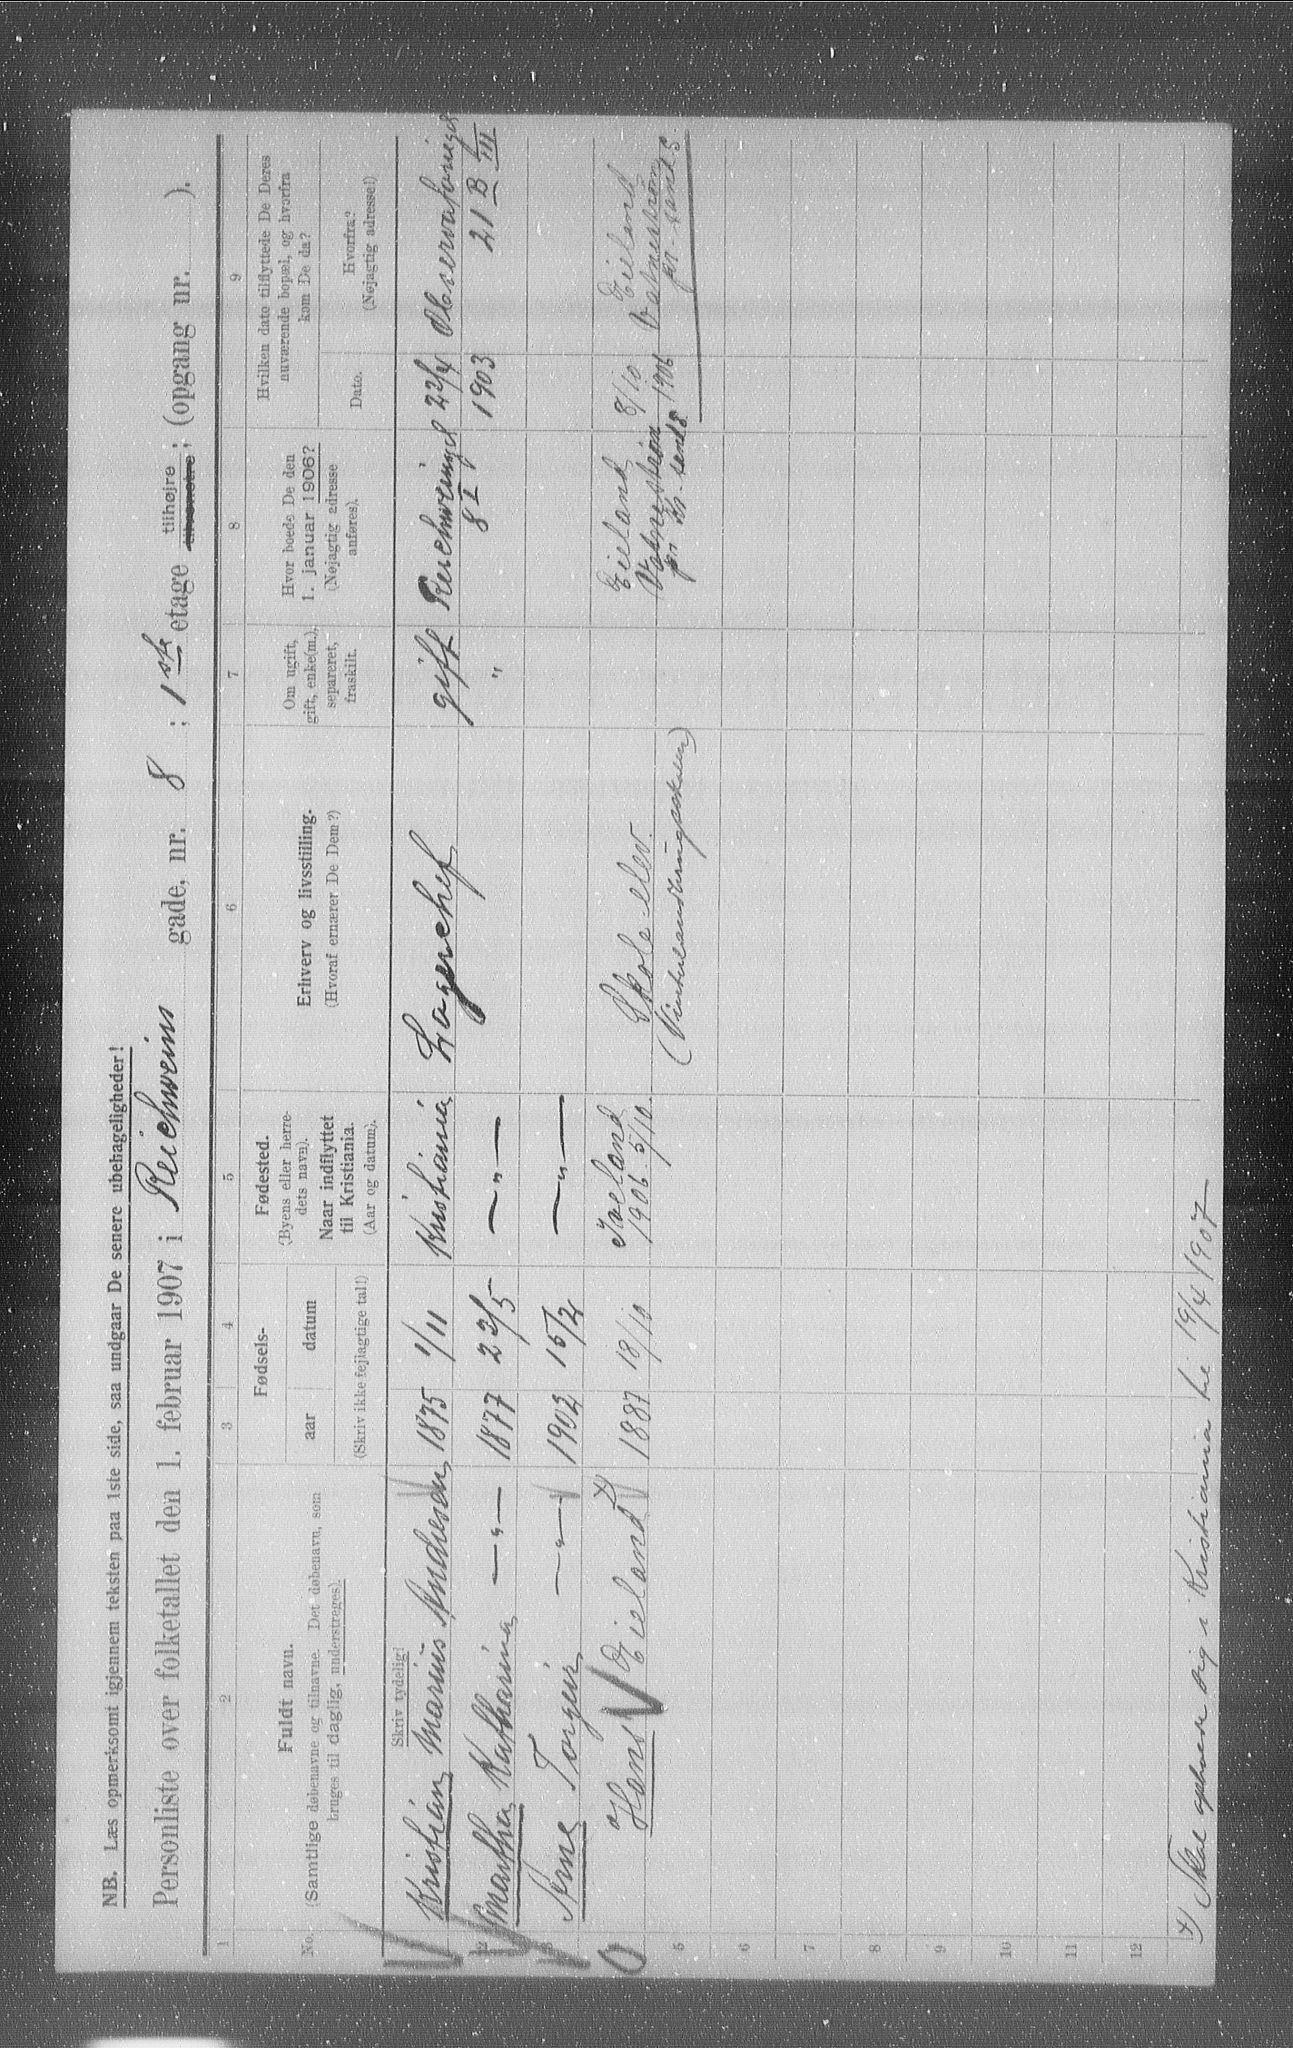 NB. Læs opmerksomt igjennem teksten paa 1ste side, saa undgaar De senere ubehageligheder!
Personliste over folketallet den 1. februar 1907 i Reichweins gade, nr. 8 ; 1ste etage tilhøjre tilvenstre ; (opgang nr. ).
1 2 3 4 5 6 7 8 9
No.
Fuldt navn.
(Samtlige døbenavne og tilnavne. Det døbenavn, som
bruges til daglig, understreges).
Skriv tydelig!
Fødsels-
aar datum
(Skriv ikke fejlagtige tal!)
Fødested.
(Byens eller herre-
dets navn).
Naar indflyttet
til Kristiania.
(Aar og datum).
Erhverv og livsstilling.
(Hvoraf ernærer De Dem?)
Om ugift,
gift, enke(m.),
separeret,
fraskilt.
Hvor boede De den
1. januar 1906?
(Nøjagtig adresse
anføres).
Hvilken dato tilflyttede De Deres
nuværende bopæl, og hvorfra
kom De da?
Dato.
Hvorfra?
(Nøjagtig adresse!)
Kristian Marius Andresen 1875 1/11 Kristiania Lagerchef gift Reichweinsgd 22/4 Observatoriegd
2 Martha Katharina —„— 1877 23/5 —„— „ 8 I 1903 21 B III
3 Arne Torgeir —„— 1902 15/2 —„—
Hans Eieland x) 1887 18/10 Iveland Skole-elev. Eieland 8/10 Eieland
5 1906 5/10. Vatnestrøm 1906 Vatnestrøm
pr.
6
7
8
9
10
11
12
x) Skal opholde sig i Kristiania til 19/4 1907